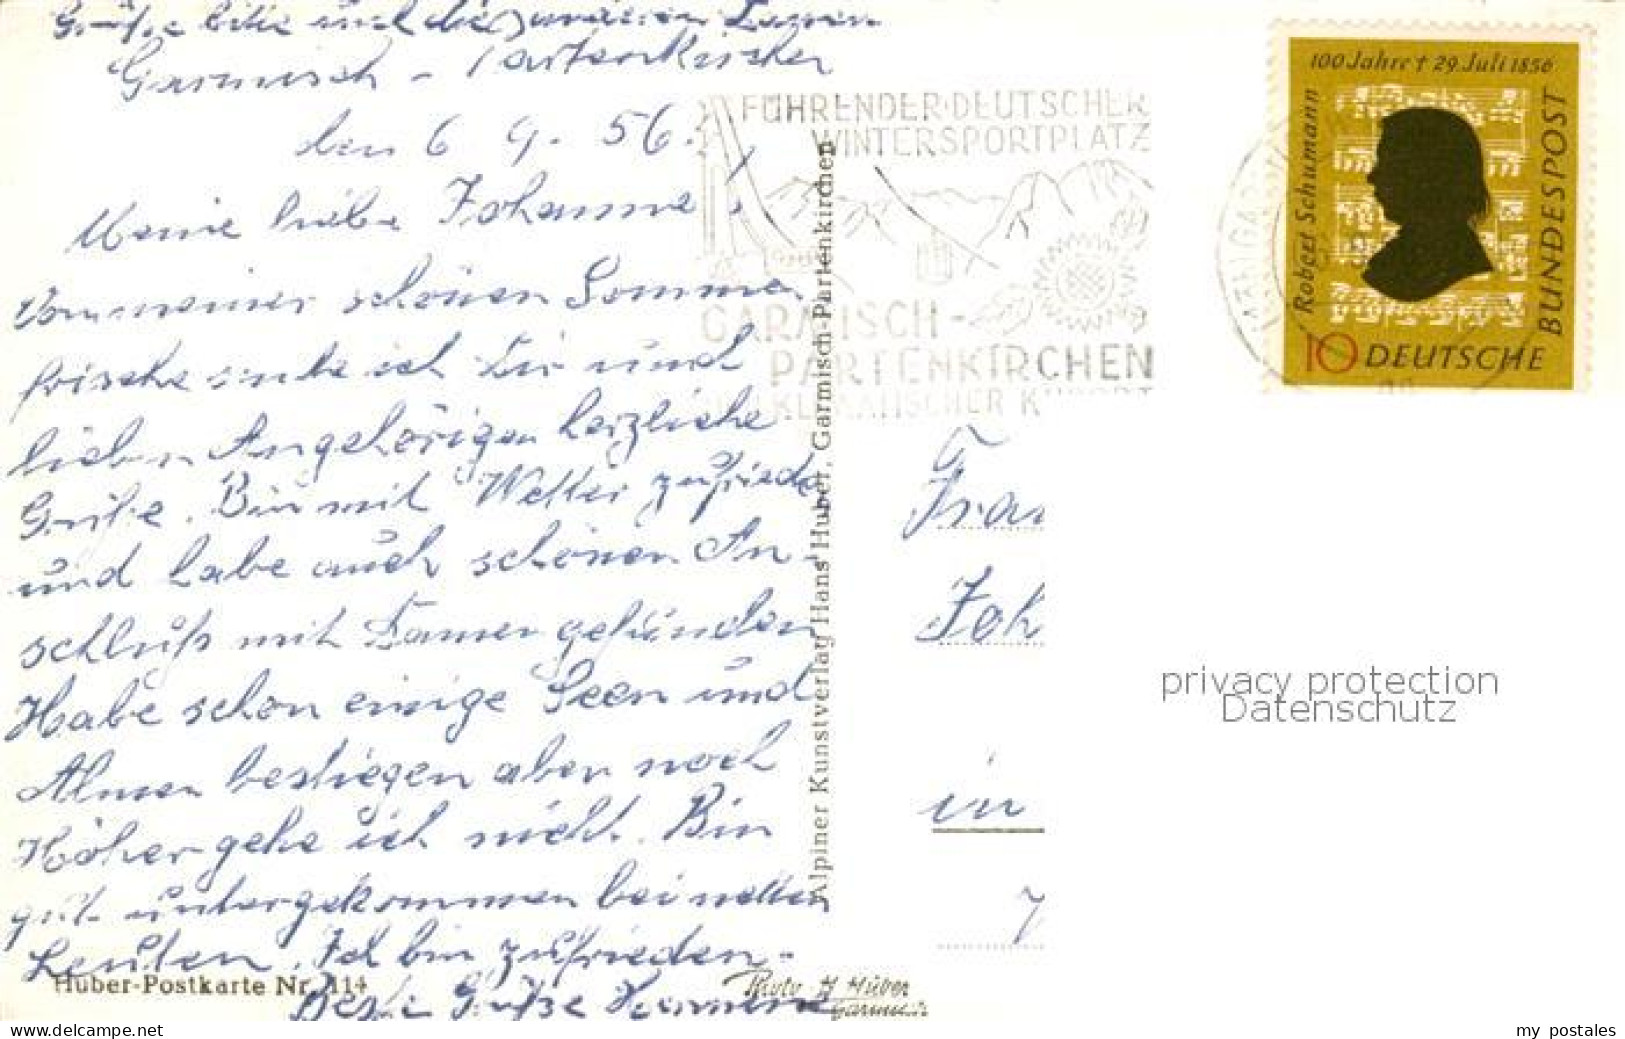 Grüße bitte und die anderen Damen
Garmisch - Partenkirchen
den 6 9. 56.
Meine liebe Johanna!
Von meiner schönen Sommer
frische sende ich Dir und
lieben Angehörigen herzliche
Grüße. Bin mit Wetter zufrieden
und habe auch schönen An-
schluß mit Damen gefunden
Habe schon einige Seen und
Almen bestiegen aber noch
Höher gehe ich nicht. Bin
gut untergekommen bei netten
Leuten. Ich bin zufrieden -
Beste Grüße
Huber-Postkarte Nr. 114
Photo H Huber
Garmisch
Alpiner Kunstverlag Hans Huber, Garmisch-Partenkirchen
FÜHRENDER DEUTSCHER
WINTERSPORTPLATZ
GARMISCH-
PARTENKIRCHEN
HEILKLIMATISCHER KURORT
100 Jahre † 29. Juli 1856
Robert Schumann
BUNDESPOST
10 DEUTSCHE
Frau
Joh
in
privacy protection
Datenschutz
www.delcampe.net
my_postales